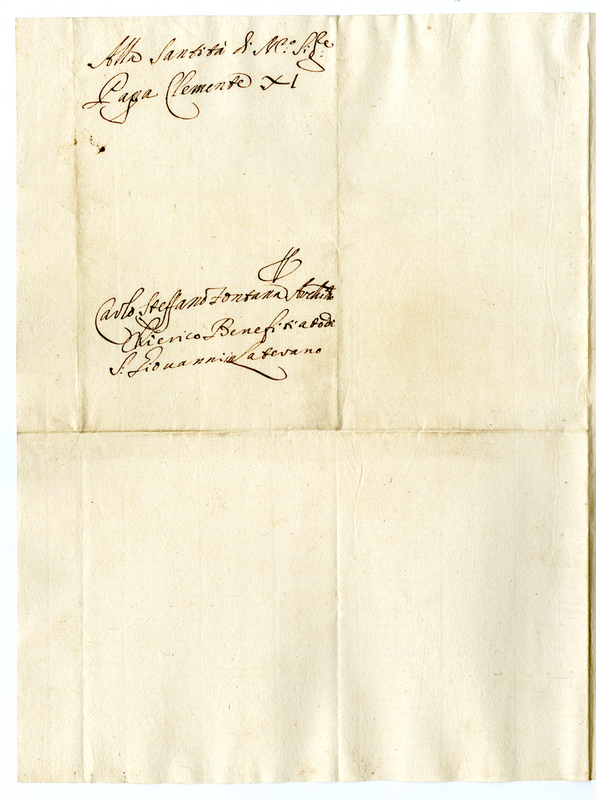 Alla Santità di N.o Sig.re
Papa Clemente XI
Carlo Steffano Fontana Archito
Chierico Benefitiato di
S. Giovanni in Laterano